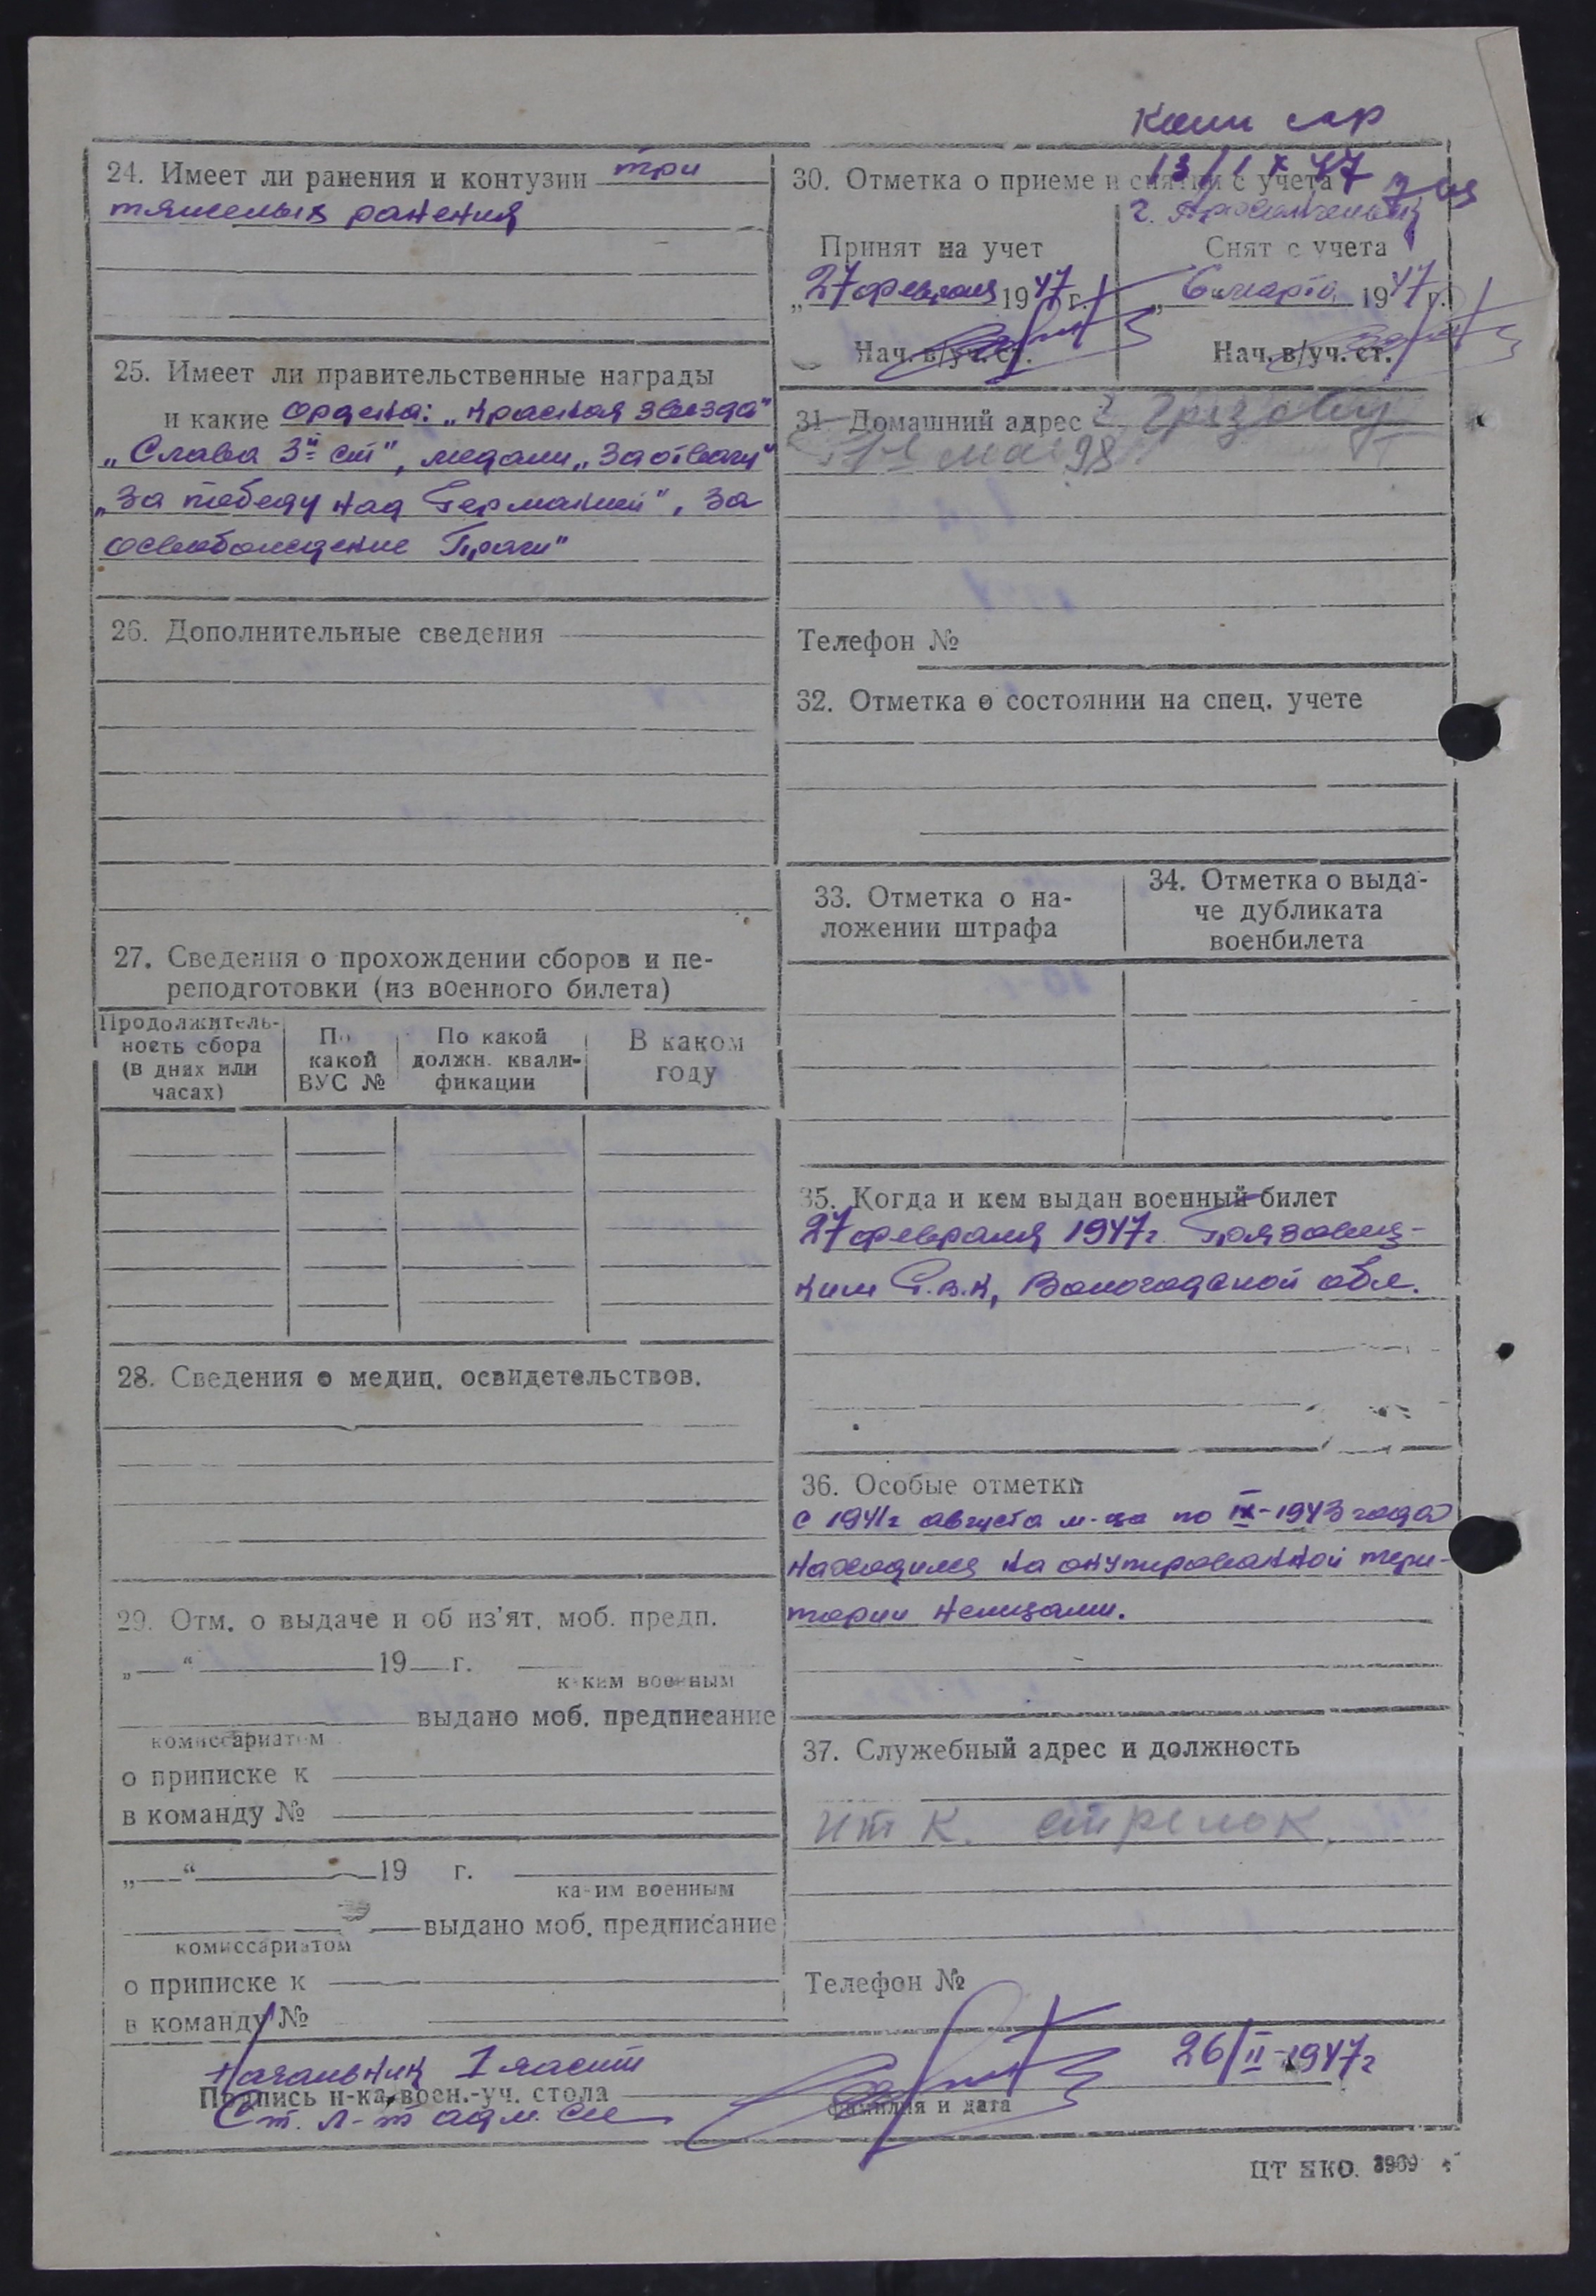 24. Имеет ли ранения и контузии три
тяжелых ранения
25. Имеет ли правительственные награды
и какие Ордена: „Красная звезда"
„Слава 3й ст", медали „За отвагу"
„За победу над Германией", За
освобождение Праги"
26. Дополнительные сведения
27. Сведения о прохождении сборов и пе-
реподготовки (из военного билета)
Продолжитель-
ность сбора
(в днях или
часах)
По
какой
ВУС №
По какой
должн. квали-
фикации
В каком
году
28. Сведения о медиц. освидетельствов.
29. Отм. о выдаче и об из'ят. моб. предп.
„ “ 19 г.
каким военным
выдано моб. предписание
комиссариатом
о приписке к
в команду №
„ “ 19 г.
каким военным
выдано моб. предписание
комиссариатом
о приписке к
в команду №
13/IX 47
30. Отметка о приеме и снятии с учета
г.
Принят на учет
„27 февраля 1947 г.
Нач. в/уч. ст.
Снят с учета
„6 марта 1947 г.
Нач. в/уч. ст.
31. Домашний адрес г. Грязовец
1е мая 98
Телефон №
32. Отметка о состоянии на спец. учете
33. Отметка о на-
ложении штрафа
34. Отметка о выда-
че дубликата
военбилета
35. Когда и кем выдан военный билет
27 февраля 1947г. Грязовец-
ким Р.В.К, Вологодской обл.
36. Особые отметки
с 1941г августа м-ца по IX-1943 года
находился на окупированной тери-
тории немцами.
37. Служебный адрес и должность
ИТК. стрелок
Телефон №
Начальник 1 части
Подпись н-ка воен.-уч. стола
Ст. л-т адм. сл
фамилия и дата
26/II-1947г
ЦТ НКО.